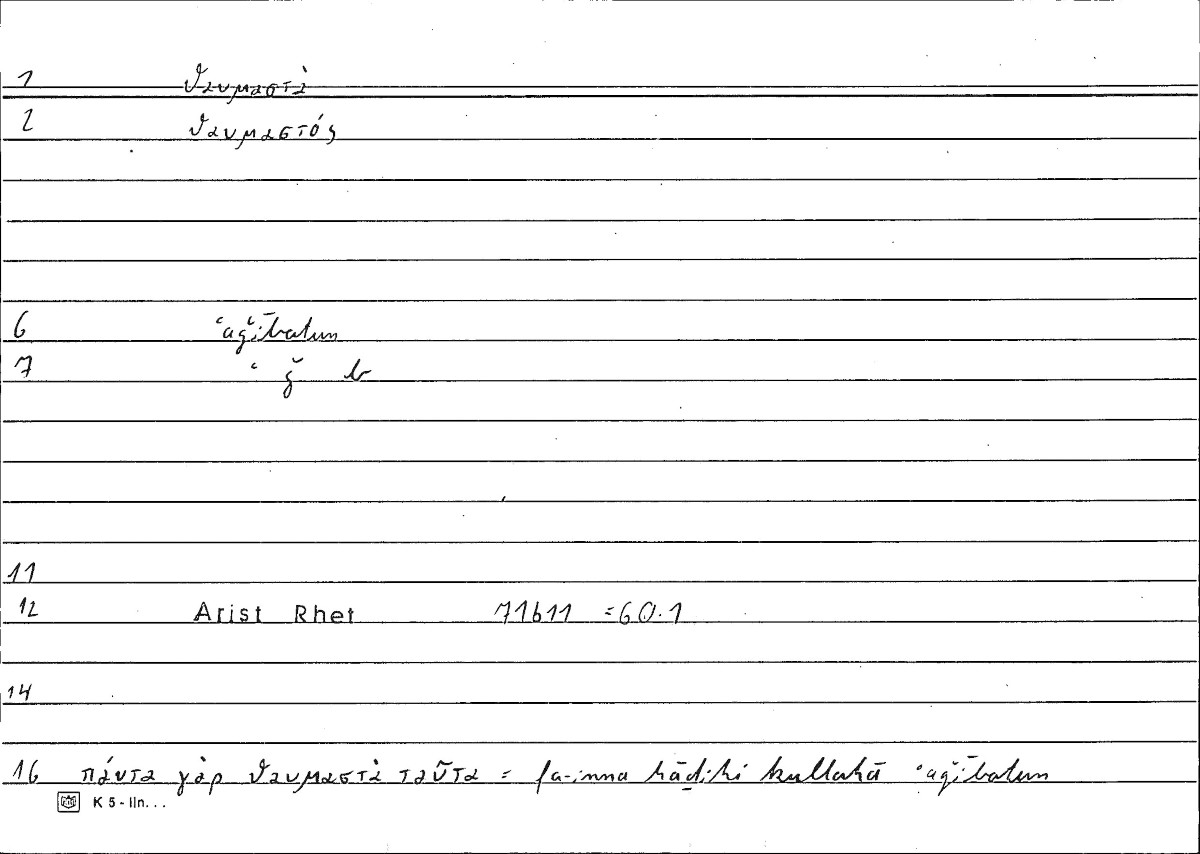 1 ϑαυμαστὰ
2 ϑαυμαστός
6 ʿaǧībatun
7 ʿ ǧ b
11
12 Arist Rhet 71b11 =60.1
14
16 πάντα γὰρ ϑαυμαστὰ ταῦτα = fa-inna hāḏihi kullahā ʿaǧībatun
K 5 - lln. . .